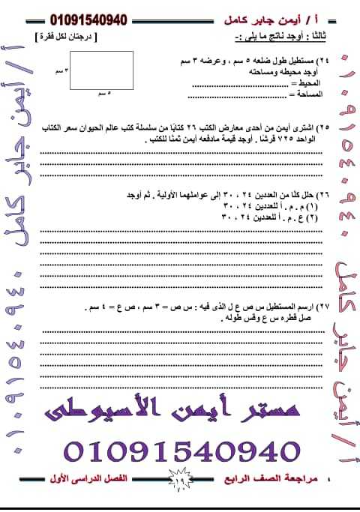 أ / أيمن جابر كامل 01091540940
ثالثا : أوجد ناتج ما يلى :- [ درجتان لكل فقرة ]
(٢٤ مستطيل طول ضلعه ٥ سم ، وعرضه ٣ سم
أوجد محيطه ومساحته
المحيط =
المساحة =
٣ سم
٥ سم
(٢٥ اشترى أيمن من أحدى معارض الكتب ٢٦ كتابًا من سلسلة كتب عالم الحيوان سعر الكتاب
الواحد ٧٢٥ قرشًا . أوجد قيمة مادفعه أيمن ثمنًا للكتب .
(٢٦ حلل كلًا من العددين ٢٤ ، ٣٠ إلى عواملهما الأولية . ثم أوجد
(١) م . م . أ للعددين ٢٤ ، ٣٠
(٢) ع . م . أ للعددين ٢٤ ، ٣٠
(٢٧ ارسم المستطيل س ص ع ل الذى فيه : س ص = ٣ سم ، ص ع = ٤ سم .
صل قطره س ع وقس طوله .
مستر أيمن الأسيوطى
01091540940
مراجعة الصف الرابع ١٩ الفصل الدراسى الأول
أ / أيمن جابر كامل ٠١٠٩١٥٤٠٩٤٠
٠١٠٩١٥٤٠٩٤٠ أ / أيمن جابر كامل